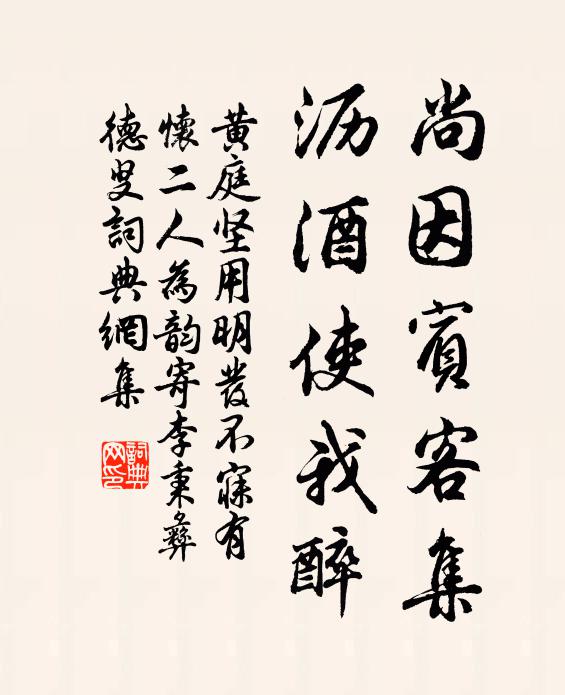 尚因賓客集
沥酒使我醉
黄庭坚用明發不寐有
懷二人為韵寄李秉彝
德叟詞典網集
詞典网印